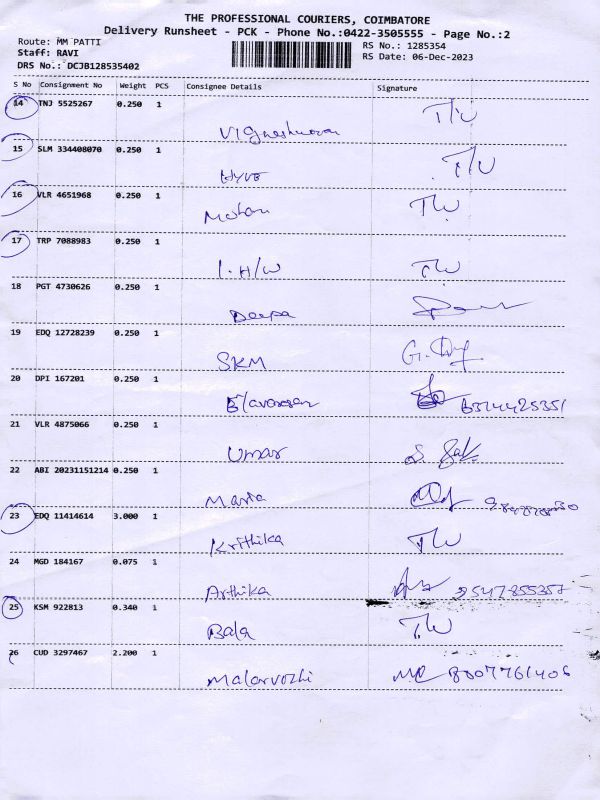 THE PROFESSIONAL COURIERS, COIMBATORE
Delivery Runsheet - PCK - Phone No.:0422-3505555 - Page No.:2
Route: MM PATTI RS No.: 1285354
Staff: RAVI RS Date: 06-Dec-2023
DRS No.: DCJB128535402
S No Consignment No Weight PCS Consignee Details Signature
14 TNJ 5525267 0.250 1
Vigneshwaran T/W
15 SLM 334408070 0.250 1
T/W
16 VLR 4651968 0.250 1
Mohan T/W
17 TRP 7088983 0.250 1
I.H/W T/W
18 PGT 4730626 0.250 1
Deepa
19 EDQ 12728239 0.250 1
SKM
20 DPI 167201 0.250 1
Elavarasan 6374425351
21 VLR 4875066 0.250 1
Umar
22 ABI 20231151214 0.250 1
Maria
23 EDQ 11414614 3.000 1
Krithika T/W
24 MGD 184167 0.075 1
Arthika 9547855357
25 KSM 922813 0.340 1
Bala T/W
26 CUD 3297467 2.200 1
Malarvozhi 8007761406